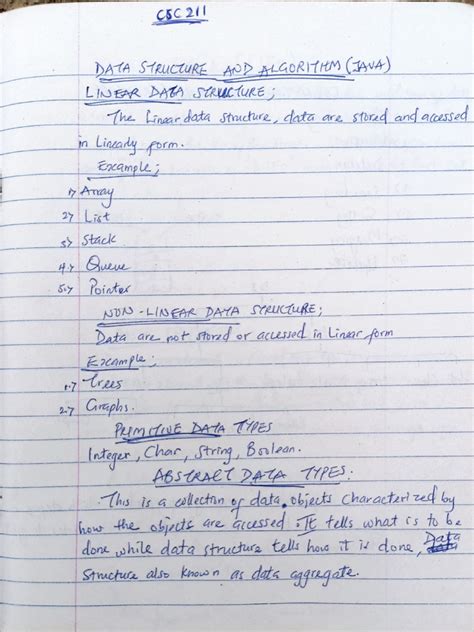 CSC 211
DATA STRUCTURE AND ALGORITHM (JAVA)
LINEAR DATA STRUCTURE;
The Linear data structure, data are stored and accessed
in Linearly form.
Example;
1.> Array
2.> List
3.> Stack
4.> Queue
5.> Pointer
NON-LINEAR DATA STRUCTURE;
Data are not stored or accessed in Linear form
Example;
1.> Trees
2.> Graphs.
PRIMITIVE DATA TYPES
Integer, Char, String, Boolean.
ABSTRACT DATA TYPES:
This is a collection of data objects characterized by
how the objects are accessed. It tells what is to be
done while data structure tells how it is done, Data
Structure also known as data aggregate.